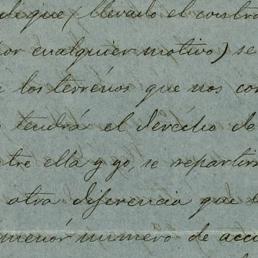 dique, llevado el contra
or cualquier motivo) se
los terrenos que nos con
tendrá el derecho de
tre ella y yo, se repartir
otra diferencia que s
menor número de acci